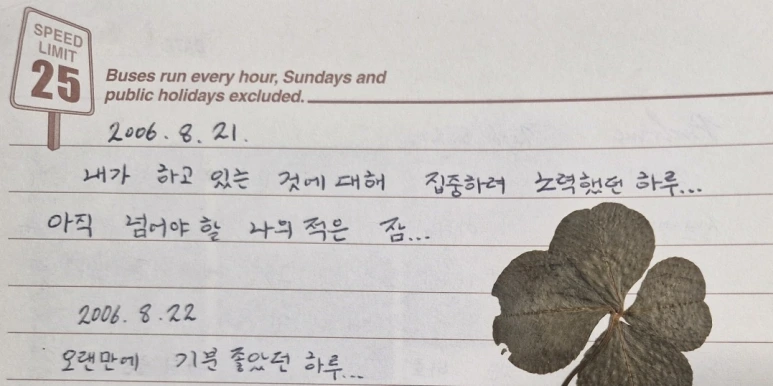 SPEED
LIMIT
25
Buses run every hour, Sundays and
public holidays excluded.
2006. 8. 21.
내가 하고 있는 것에 대해 집중하려 노력했던 하루...
아직 넘어야 할 나의 적은 잠...
2006. 8. 22
오랜만에 기분 좋았던 하루...